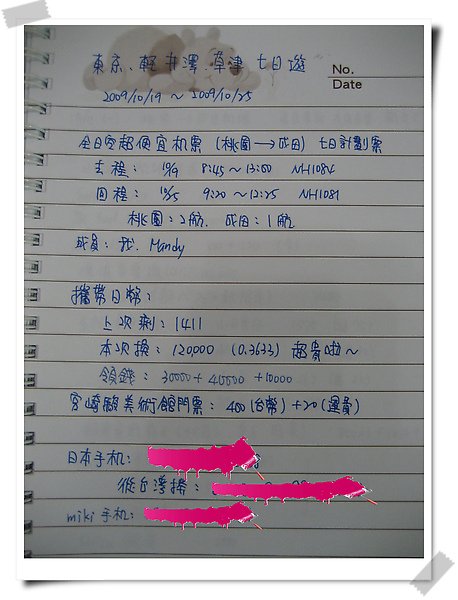 東京、輕井澤、草津 七日遊
No.
Date
2009/10/19 ~ 2009/10/25
全日空超便宜机票 (桃園→成田) 七日計劃票
去程: 10/19 8:45~13:00 NH1084
回程: 10/25 9:20~12:25 NH1081
桃園:2航. 成田:1航
成員:我. Mandy
攜帶日幣:
上次剩:1411
本次換:120,000 (0.3633) 超貴啦~
領錢: 30000+40000+10000
宮崎駿美術館門票: 400(台幣)+20(運費)
日本手机:
從台灣撥:
miki 手机: